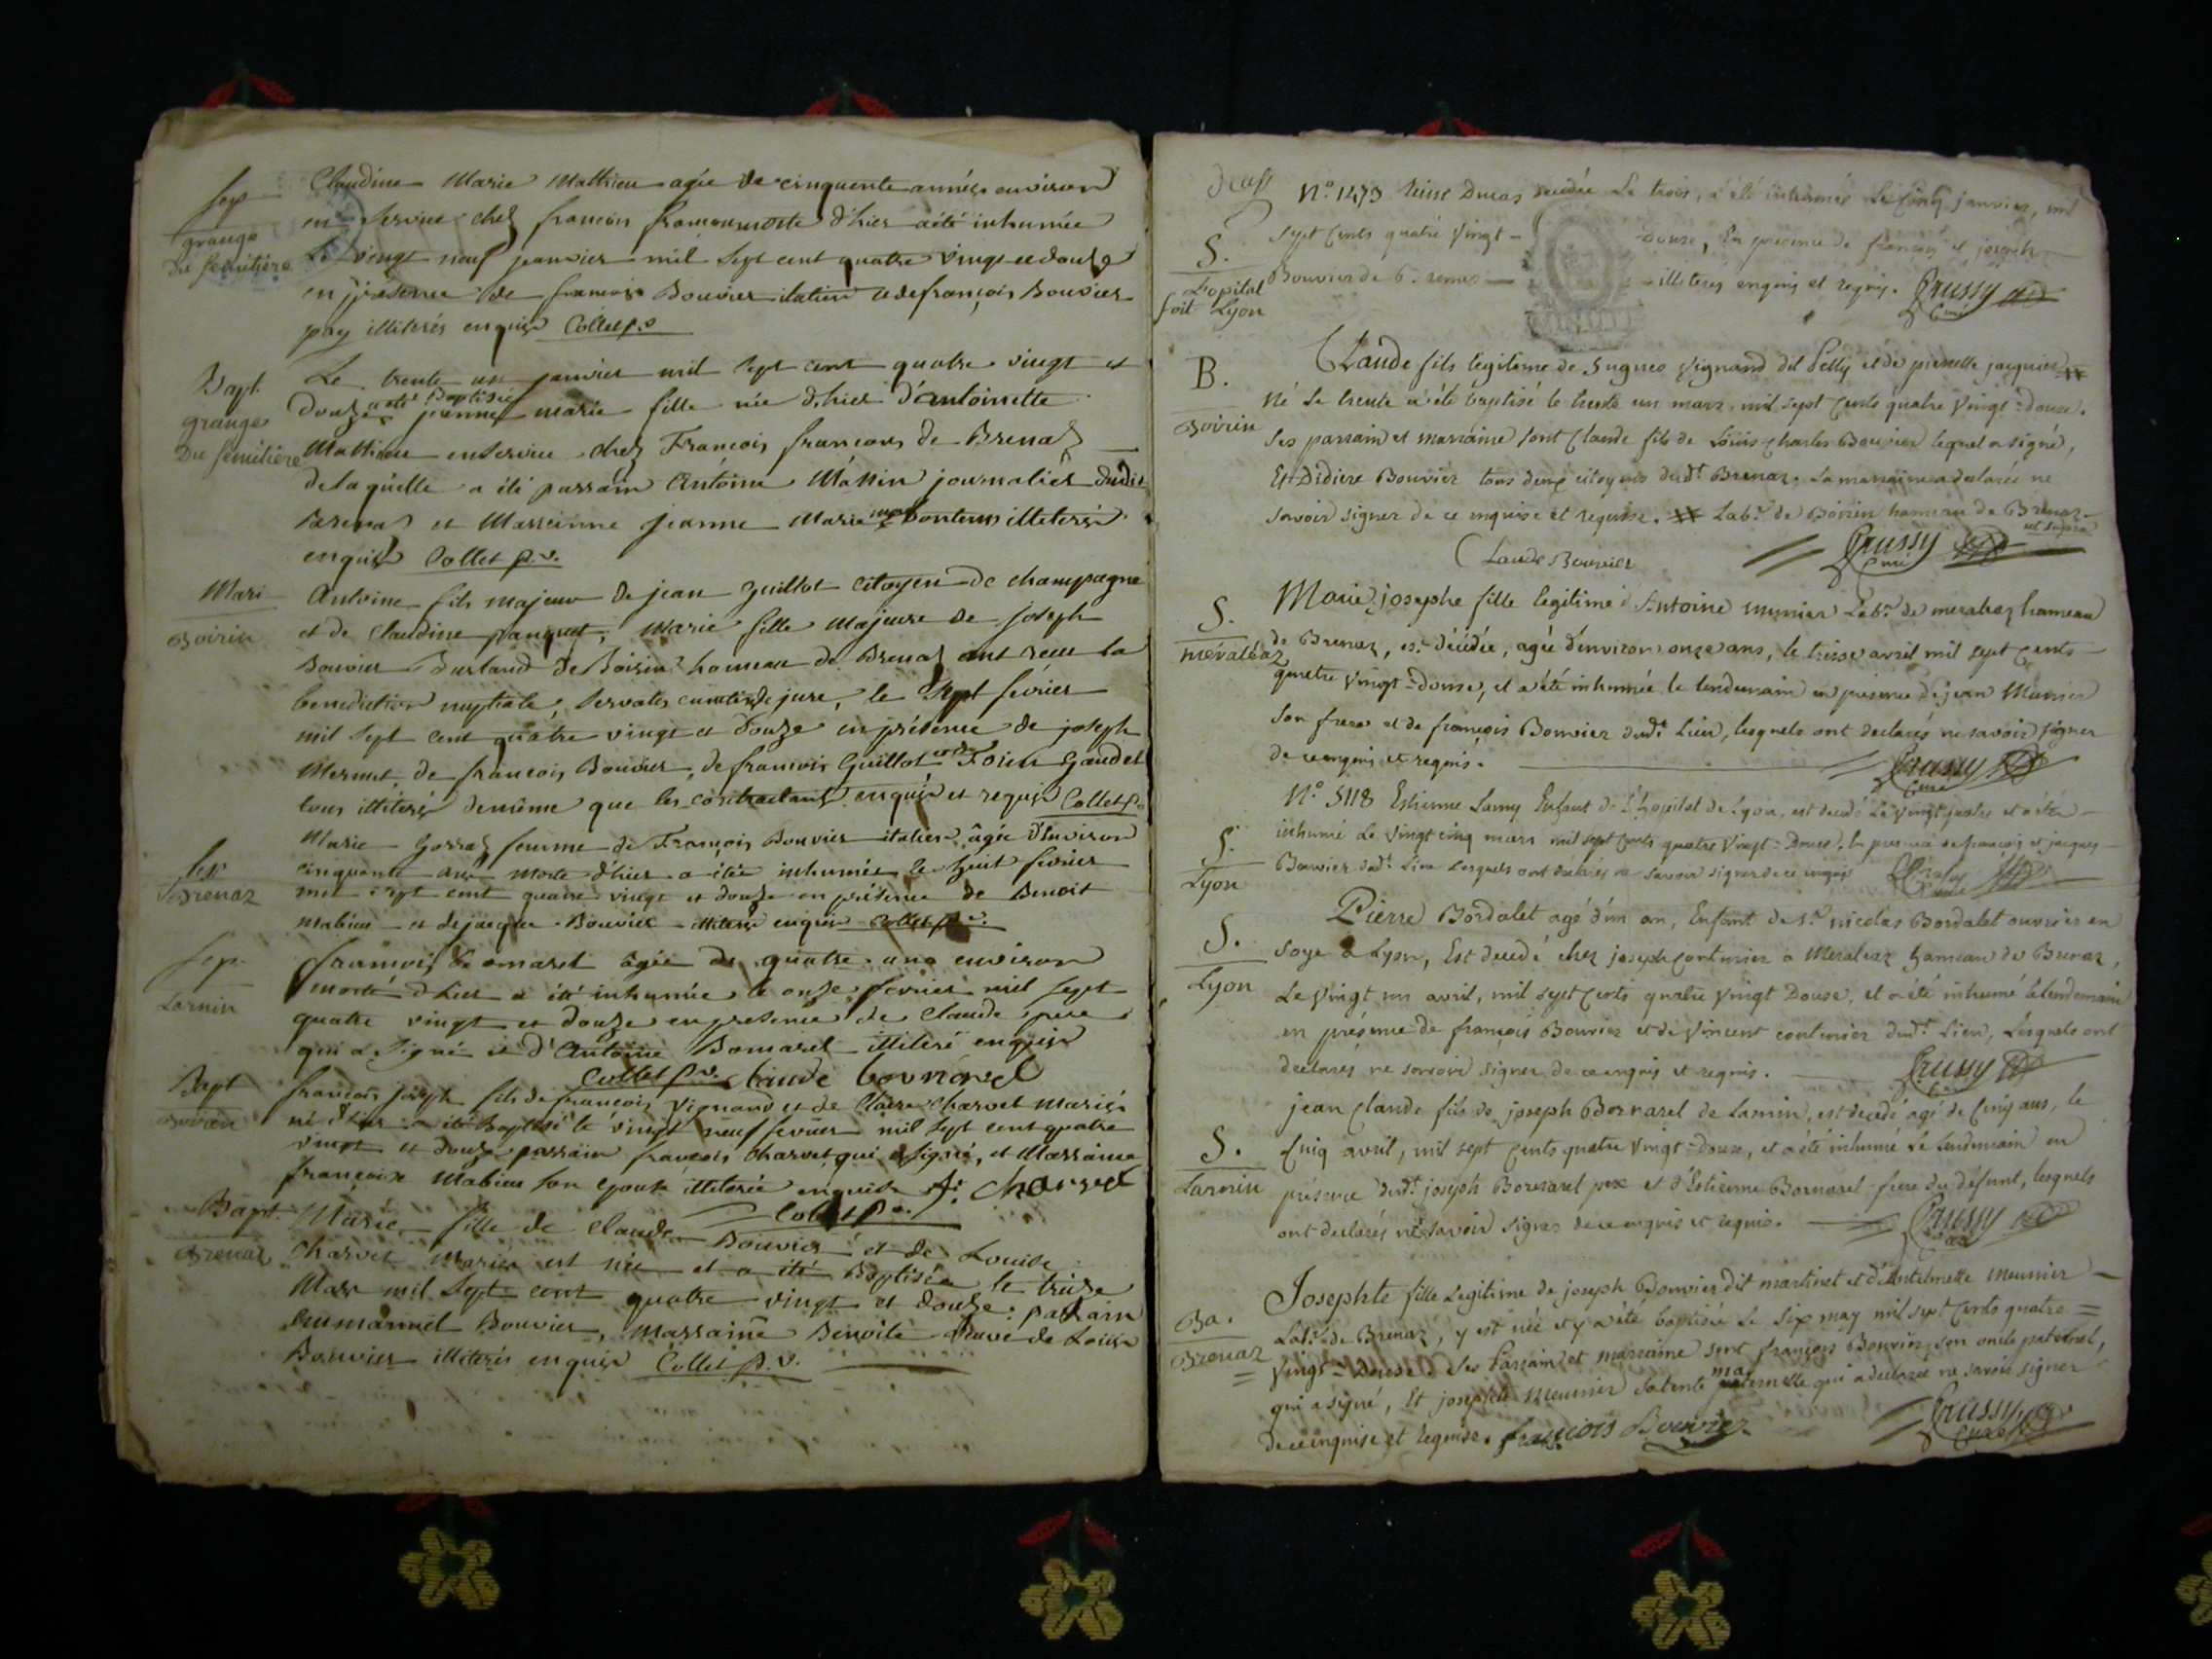 Sep
grange
Du semitière
Claudine Marie Mathieu agée de cinquente années environ
en service chez francois francon morte d'hier a été inhumée
Le vingt neuf jeanvier mil sept cent quatre vingt et douze
en présence de francois Bouvier italien et de françois Bouvier
pay illiterés enquis Collet p.v
Bapt
grange
Du semitière
Le trente un janvier mil sept cent quatre vingt et
douze a été Baptisée jeanne marie fille née d'hier d'antoinette
Mathieu en service chez François francons de Brenaz
de laquelle a été parrain Antoine Massin journalier dudit
Brenaz et Marrainne jeanne Marie Bontems illiterés
enquis Collet p.v.
Mari
Boirin
Antoine fils majeur de jean Guillot Citoyen de champagne
et de Claudine panquet, Marie fille majeure de joseph
Bouvier Burland de Boirin hameau de Brenaz ont reçu la
benediction nuptiale, servatis cunctis de jure, le Sept fevrier
mil sept cent quatre vingt et douze en présence de joseph
Mermet, de francois Bouvier, de francois Guillot et de Gaudet
tous illiterés demême que les contractants enquis et requis Collet p.v
Sep
Brenaz
Marie Gorraz femme de François Bouvier italien âgée d'environ
cinquante ans morte d'hier a étée inhumée le huit fevrier
mil sept cent quatre vingt et douze en présence de Benoit
mabieu et de jacque Bouvier illiterés enquis Collet p.v.
Sep.
Larnin
francoise Bomarel agée de quatre ans environ
morte d'hier a été inhumée le onze fevrier mil sept
quatre vingt et douze en presence de Claude pere
qui a signé et d'Antoine Bomarel illiteré enquis
Collet p.v. Claude bournarel
Bapt
Boirin
francois joseph fils de francois Vignand et de Claire Charvet mariés
né d'hier a été Baptisé le vingt neuf fevrier mil sept cent quatre
vingt et douze parrain francois Charvet qui a signé, et Marraine
françoise Mabieu son epouse illiterée enquise f. Charvet
Collet p.v.
Bapt.
Brenaz
Marie fille de Claude Bouvier et de Louise
Charvet Mariés est née et a été Baptisée le treize
Mars mil sept cent quatre vingt et douze: parrain
Emmannuel Bouvier, marraine Benoite veuve de Louis
Bouvier illiterés enquis Collet p.v.
S.
L'opital
soit Lyon
N.º 1473 Ducas decedée Le trois, a été inhumée Le Cinq janvier, mil
sept Cents quatre Vingt - douze, En presence de françois et joseph
Bouvier de Brenaz - illiterés enquis et requis. Crussy
Curé
B.
Boirin
Claude fils legitime de Hugues Vignand dit Pelly et de pierrette jacquier
Né le trente a été baptisé le trente un mars mil sept Cents quatre Vingt=Douze.
Ses parrain et marraine sont Claude fils de Loüis Charles Bouvier lequel a signé,
Et Didiere Bouvier tous deux citoyens dud.t Brenaz. La marraine a declarée ne
savoir signer de ce enquise et requise. Lab.r de Boirin hameau de Brenaz
ut supra
Claude Bouvier
Crussy
Curé
S.
Meraleaz
Marie josephe fille legitime d'Antoine Munier Lab.r de meraleaz hameau
de Brenaz, est décédée, agée d'environ onze ans, le treize avril mil sept Cents
quatre Vingt=Douze, et a été inhumée le lendemain en presence de jean Munier
son frere et de françois Bouvier dud.t Lieu, lesquels ont declarés ne savoir signer
de ce enquis et requis.
Crussy
Curé
S.
Lyon
N.º 5118 Estienne Lamy Enfant de l'hopital de Lyon, est decedé Le Vingt quatre et a été
inhumé Le Vingt cinq mars mil sept Cents quatre Vingt=Douze, En presence de francois et jacques
Bouvier dud.t Lieu Lesquels ont declarés ne savoir signer de ce enquis Crussy
Curé
S.
Lyon
Pierre Bordalet agé d'un an, Enfant de S.r nicolas Bordalet ouvrier en
soye à Lyon, Est decedé chez joseph Conturier a Meraleaz hameau de Brenaz,
Le Vingt un avril, mil sept Cents quatre Vingt Douze, et a été inhumé le lendemain
en présence de françois Bouvier et de Vincent conturier dud.t Lieu, Lesquels ont
declarés ne savoir signer de ce enquis et requis. Crussy
Curé
S.
Larnin
jean Claude fils de joseph Bornarel de Larnin, est decedé agé de Cinq ans, le
Cinq avril, mil sept Cents quatre Vingt=Douze, et a été inhumé Le Lendemain en
présence dud.t joseph Bornarel pere et d'Estienne Bornarel frere du défunt, lesquels
ont declarés ne savoir signer de ce enquis et requis. Crussy
Curé
Ba.
Brenaz
Josephte fille Legitime de joseph Bouvier dit martinet et d'Antelmette Meunier
Lab.r de Brenaz, y est née et y a été baptisée Le Six may mil sept Cents quatre=
Vingt=Douze. Ses Parrain et marraine sont françois Bouvier son oncle paternel,
qui a signé, Et josephte Meunier sa tente maternelle qui a declarée ne savoir signer
de ce enquise et requise. françois Bouvier
Crussy
Curé